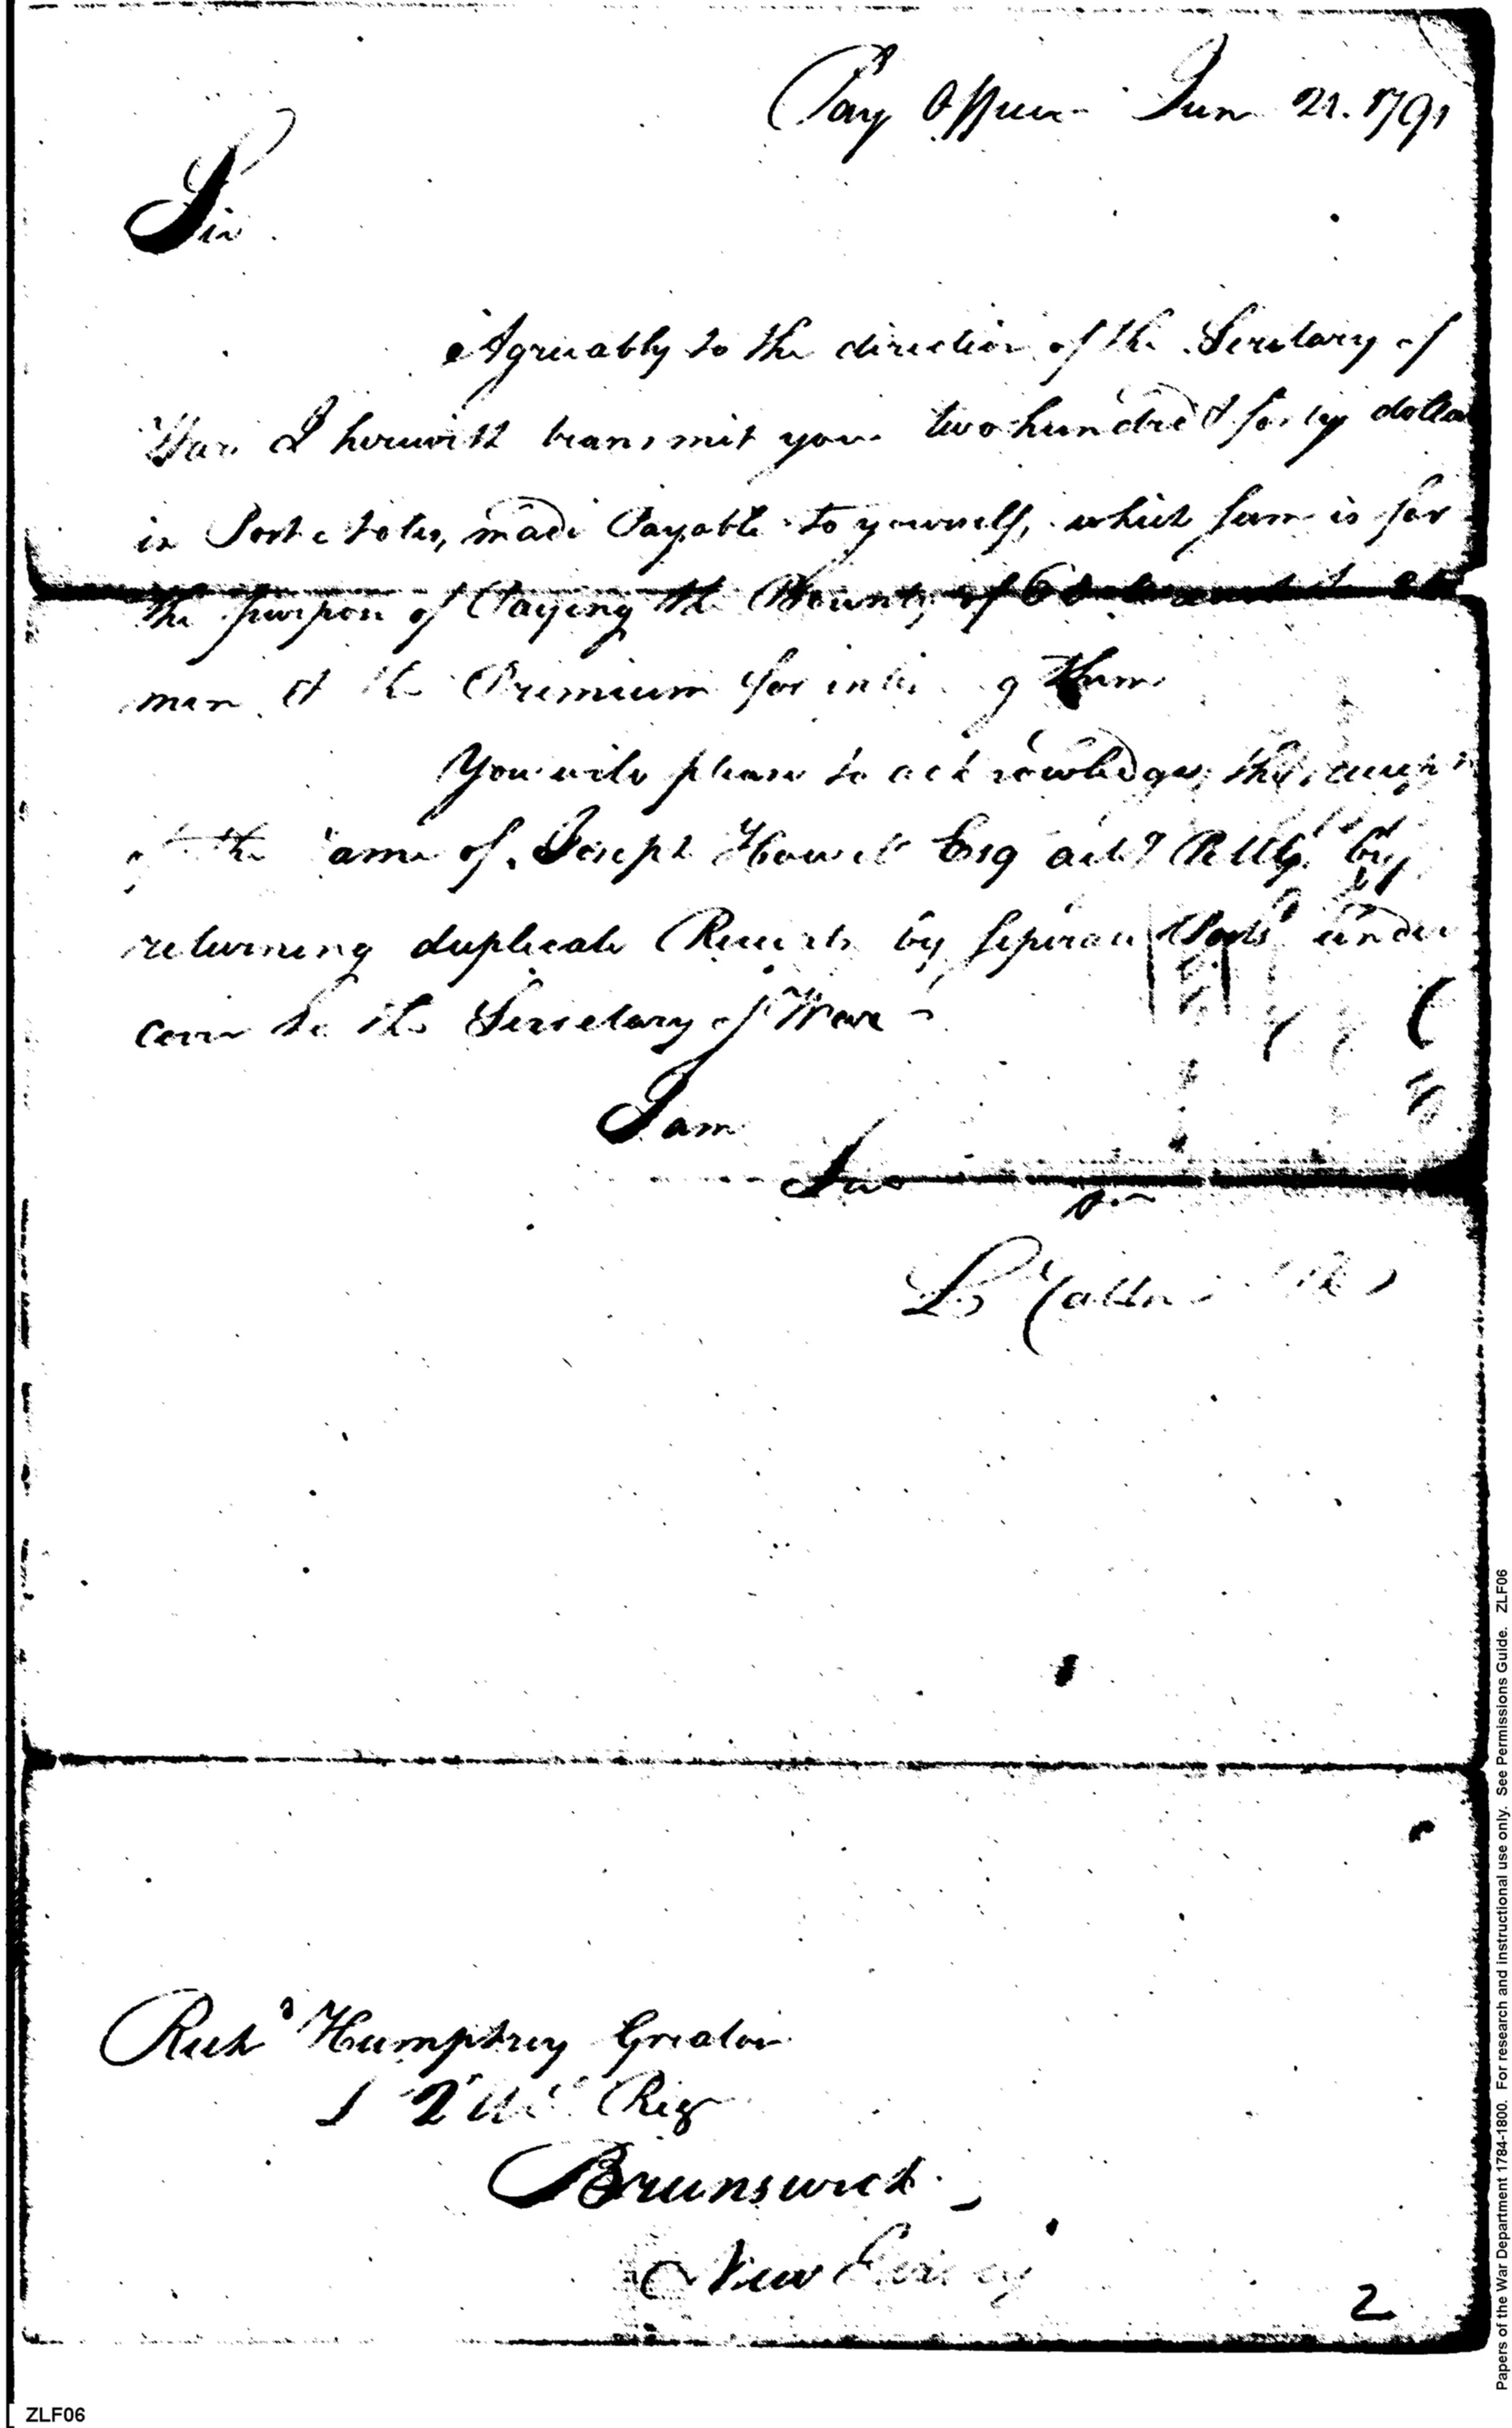 Pay Office Jun 21. 1791
Sir
Agreeably to the direction of the Secretary of
War I herewith transmit you two hundred & forty dollars
in Post Notes, made Payable to yourself, which sum is for
the purpose of Paying the Bounty of 6
men & the Premium for them
You will please to acknowledge the
of the same of Joseph Howell Esq by
returning duplicate Receipts by seperate Posts under
cover to the Secretary of War
I am
Sir
Richd Humphrey Greaton
2 Reg
Brunswick
New Jersey
2
ZLF06
Papers of the War Department 1784-1800. For research and instructional use only. See Permissions Guide. ZLF06